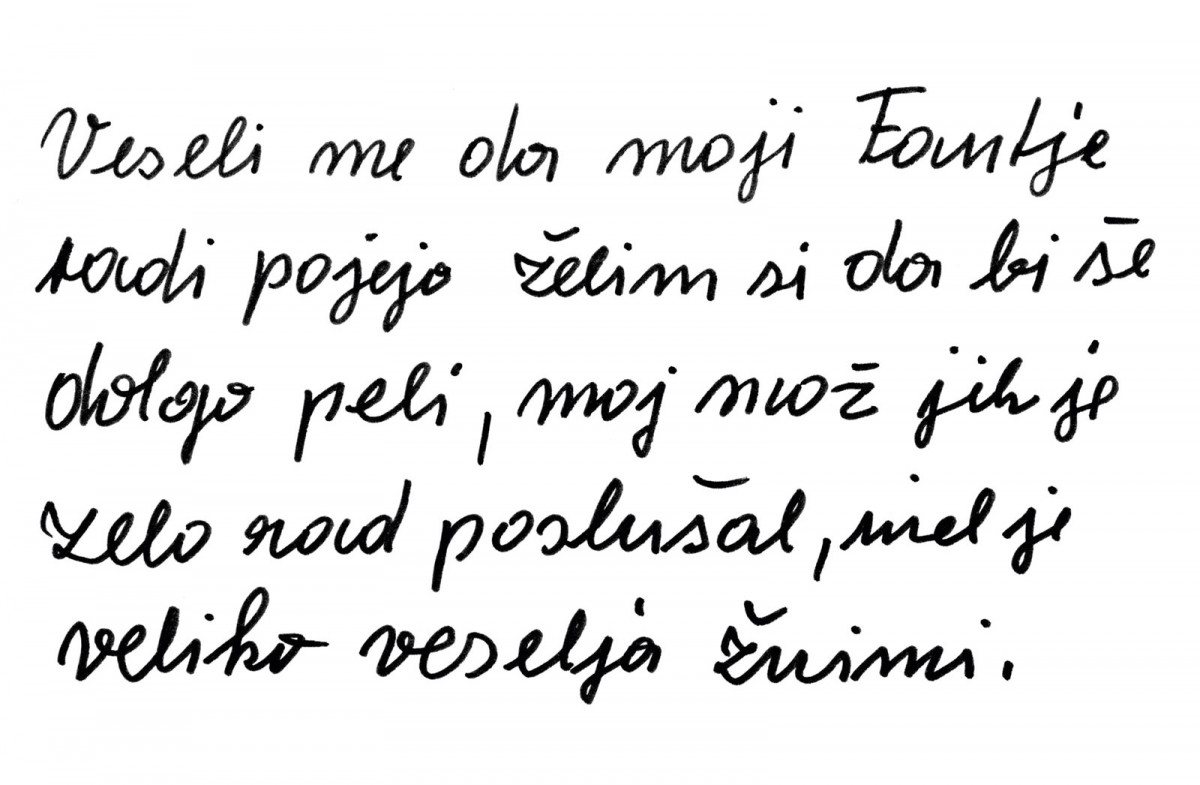 Veseli me da moji Fantje
radi pojejo želim si da bi še
dolgo peli, moj mož jih je
zelo rad poslušal, mel je
veliko veselja žnimi.